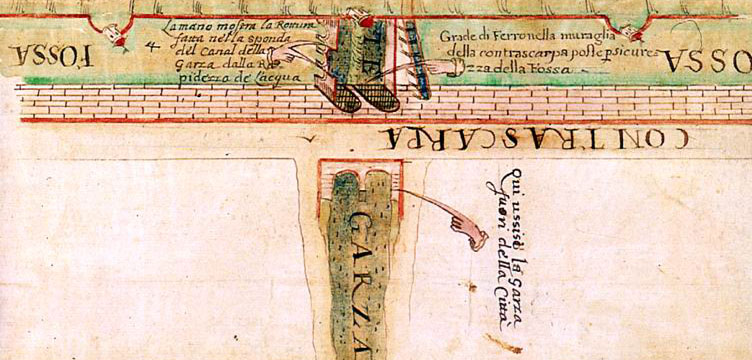 La mano mostra la Rottura
fatta nella sponda
4 del Canal della
Garza dalla Ra
pidezza de l'acqua
Grade di Ferro nella muraglia
della contrascarpa posse p sicurez
zza della Fossa
FOSSA
FOSSA
CONTRASCARPA
GARZA
Qui ussise la Garza
fuori della Città